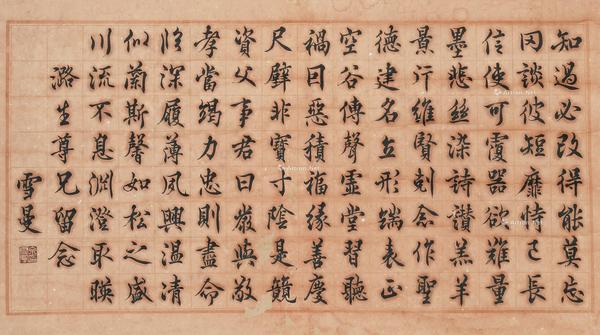 知過必改得能莫忘
罔談彼短靡恃己長
信使可覆器欲難量
墨悲丝染詩讚羔羊
景行維賢剋念作聖
德建名立形端表正
空谷傳聲虛堂習聽
禍因惡積福緣善慶
尺璧非寶寸陰是競
資父事君曰嚴與敬
孝當竭力忠則盡命
臨深履薄夙興温凊
似蘭斯馨如松之盛
川流不息淵澄取暎
潞生尊兄留念
雪曼